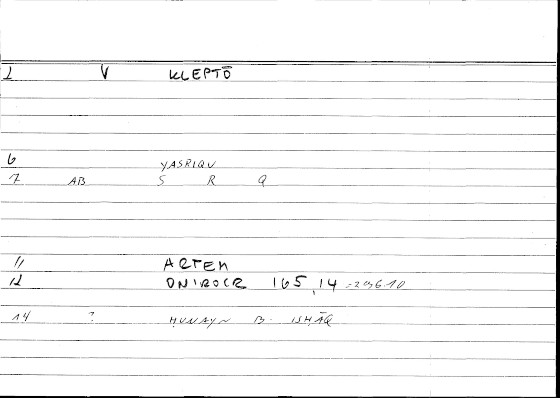 1 V KLEPTŌ
6 YASRIQU
7 AB S R Q
11 ARTEM
12 ONIROCR 165,14 =29610
14 ? ḤUNAYN B. ISḤĀQ